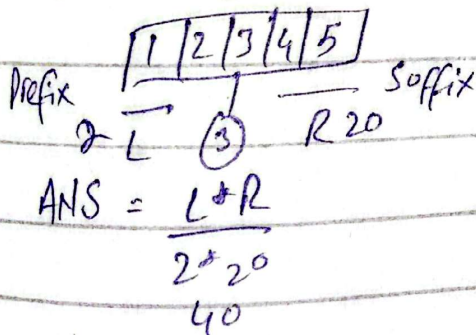 1 | 2 | 3 | 4 | 5
Prefix Soffix
2 L 3 R 20
ANS = L*R
2*20
40